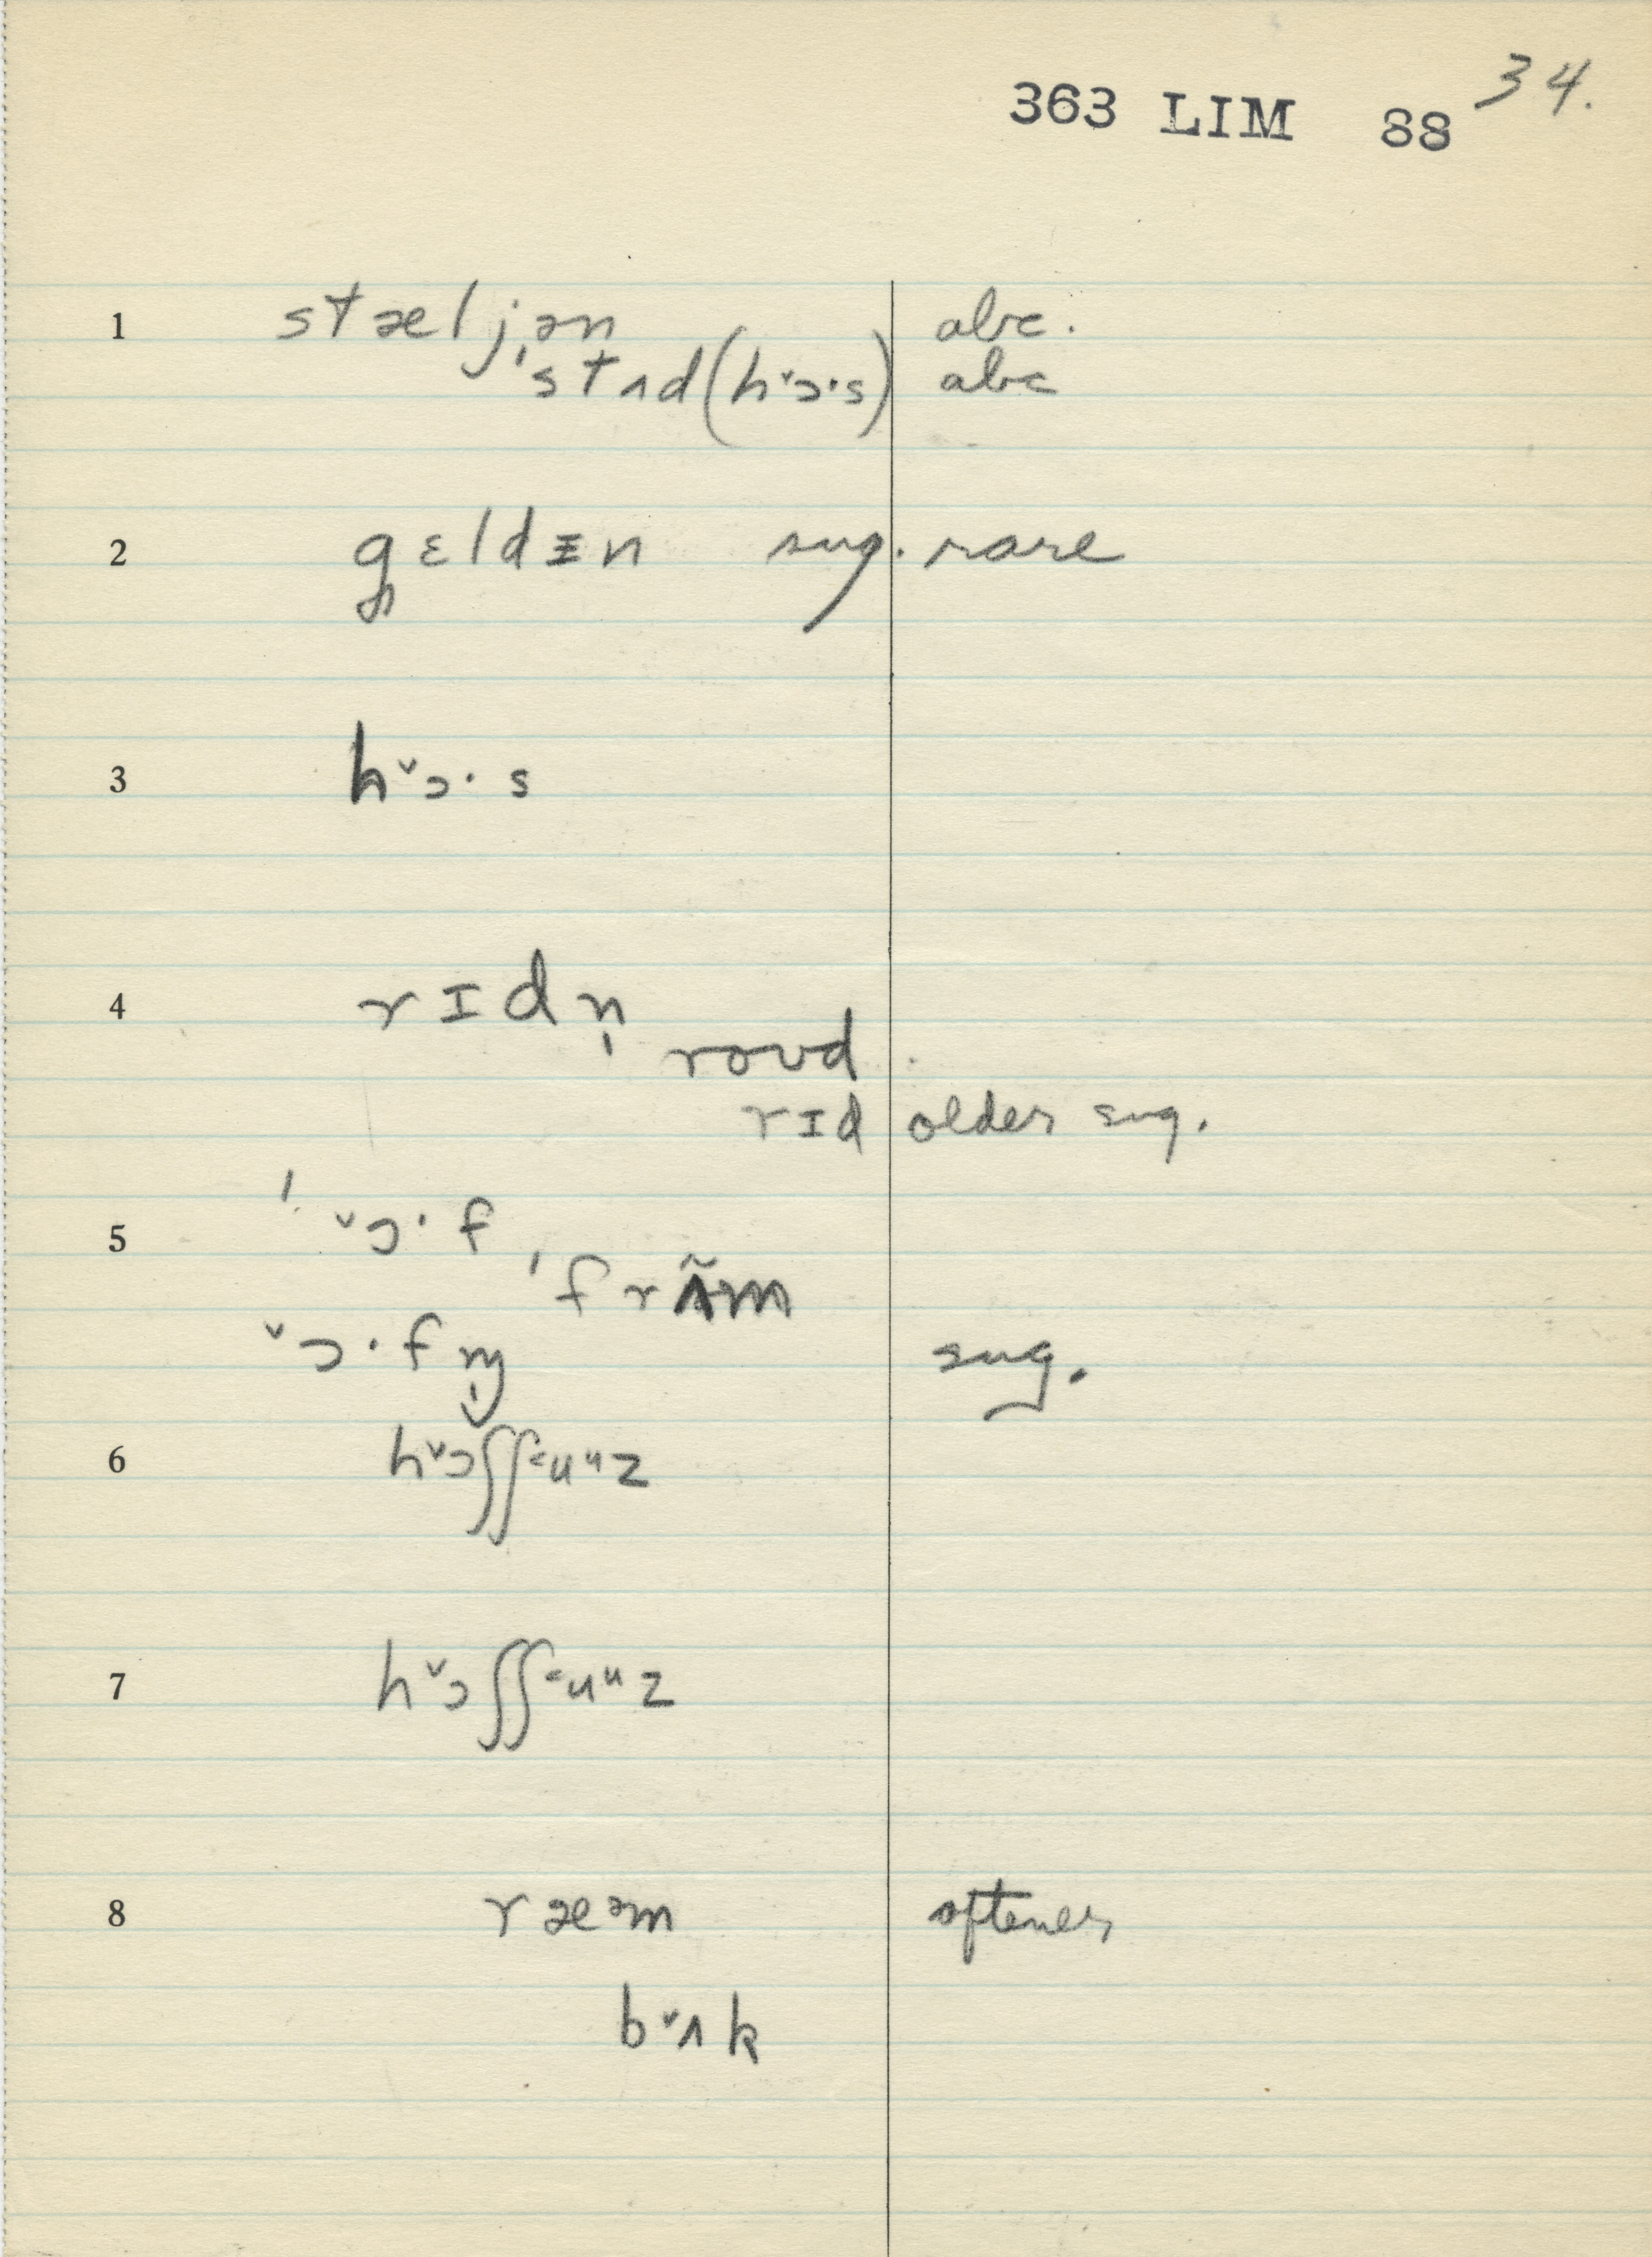 34.
363 LIM 88
1 stæljən abc.
ˈstʌd (hˇɔ·s) abc
2 gɛldᵻn sug. rare
3 hˇɔ·s
4 rɪdn̩
roʊd
rɪd older sug.
5 ˈˇɔ·f
ˈfrʌ̃m
ˇɔ·fɱ̩ sug.
6 hˇɔʃʃ=uᵘz
7 hˇɔʃʃ=uᵘz
8 ræᵊm oftener
bˇʌk